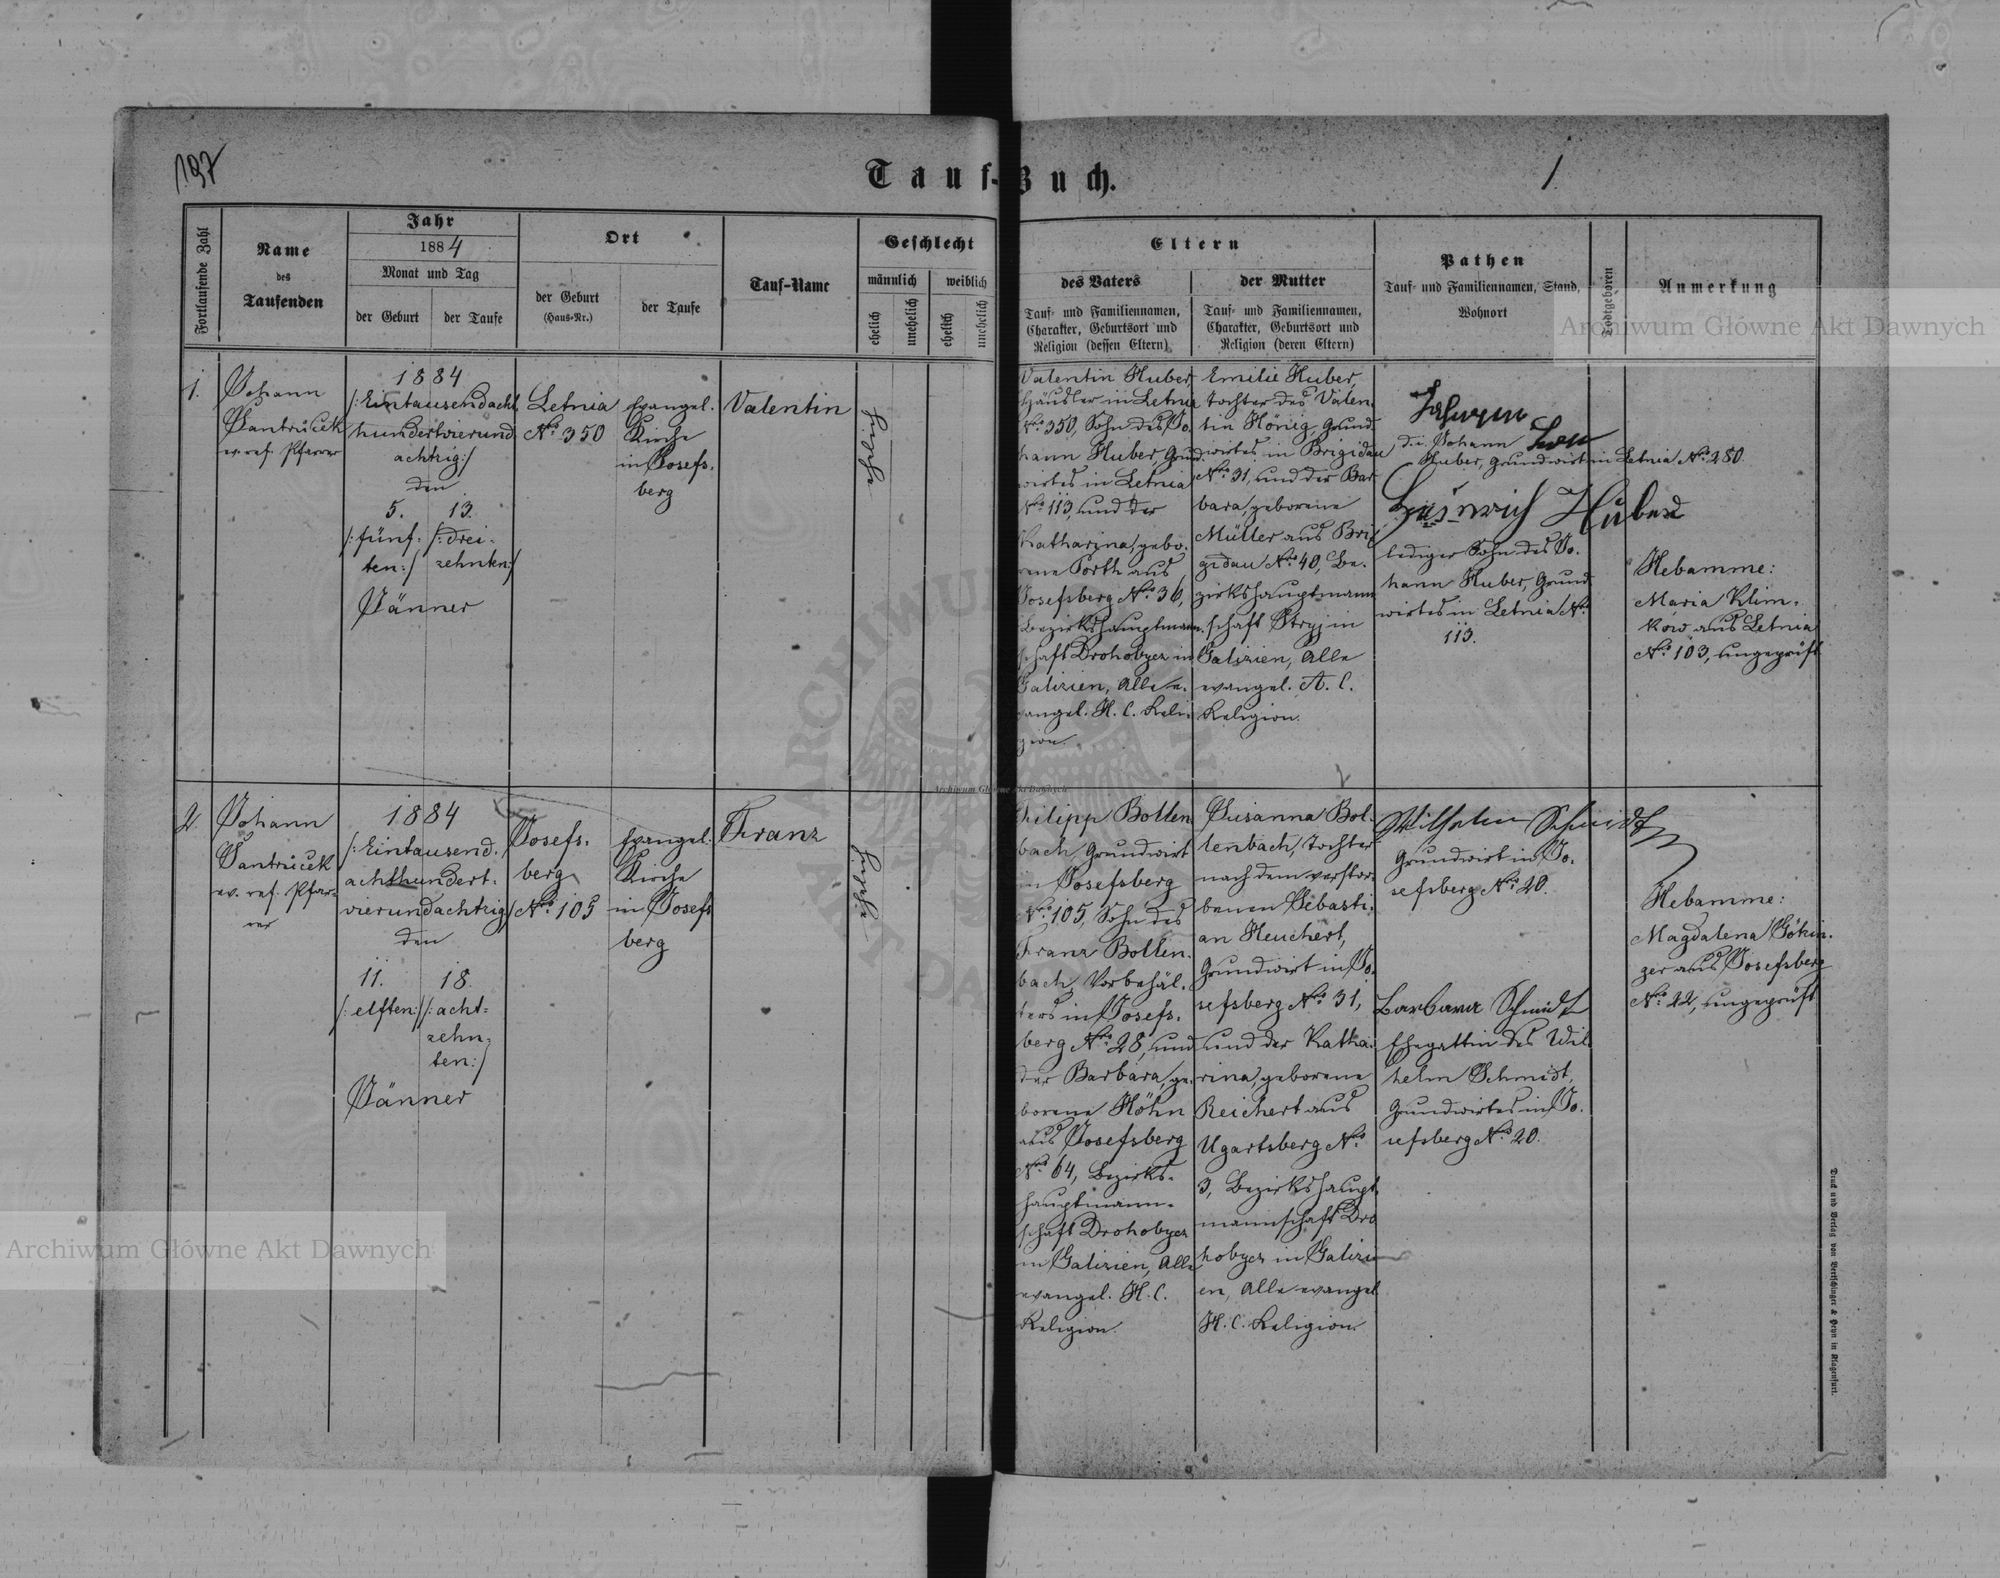 197
1
Tauf-Buch.
Fortlaufende Zahl
Name
des
Taufenden
Jahr
1884
Monat und Tag
der Geburt
der Taufe
Ort
der Geburt
(Haus-Nr.)
der Taufe
Tauf-Name
Geschlecht
männlich
weiblich
ehelich
unehelich
ehelich
unehelich
Eltern
des Vaters
Tauf- und Familiennamen,
Charakter, Geburtsort und
Religion (dessen Eltern)
der Mutter
Tauf- und Familiennamen,
Charakter, Geburtsort und
Religion (deren Eltern)
Pathen
Tauf- und Familiennamen, Stand,
Wohnort
Todtgeboren
Anmerkung
1.
Johann
Jantrücek
ev. ref. Pfarrer
1884
/:Eintausendacht
hundertvierund
achtzig:/
den
5.
/:fünf-
ten:/
13.
/:drei-
zehnten:/
Jänner
Letnia
No. 350
Evangel.
Kirche
in Josefs-
berg
Valentin
ehelich
Valentin Huber,
Häusler in Letnia
No. 350, Sohn des Jo-
hann Huber, Grund-
wirtes in Letnia
No. 113, und der
Katharina, gebo-
rene Porth aus
Josefsberg No. 36,
Bezirkshauptmann-
schaft Drohobycz in
Galizien, Alle e-
vangel. H. C. Reli-
gion.
Emilie Huber,
Tochter des Valen-
tin Hönig, Grund-
wirtes in Brigidau
No. 31, und der Bar-
bara, geborene
Müller aus Bri-
gidau No. 40, Be-
zirkshauptmann-
schaft Stryj in
Galizien, Alle
evangel. A. C.
Religion.
d.i. Johann
Huber, Grundwirt in Letnia No. 280.
Heinrich Huber
lediger Sohn des Jo-
hann Huber, Grund-
wirtes in Letnia No.
113.
Hebamme:
Maria Klim-
kow aus Letnia
No. 103, ungeprüft
2.
Johann
Jantrücek
ev. ref. Pfar-
rer
1884
/:Eintausend-
achthundert-
vierundachtzig:/
den
11.
/:elften:/
18.
/:acht-
zehn-
ten:/
Jänner
Josefs-
berg
No. 105
Evangel.
Kirche
in Josefs-
berg
Franz
ehelich
Philipp Bollen-
bach, Grundwirt
in Josefsberg
No. 105, Sohn des
Franz Bollen-
bach, Vorbehäl-
ters in Josefs-
berg No. 28, und
der Barbara, ge-
borene Höhn
aus Josefsberg
No. 64, Bezirks-
hauptmann-
schaft Drohobycz
in Galizien, Alle
evangel. H. C.
Religion.
Susanna Bol-
lenbach, Tochter
nach dem verstor-
benen Sebasti-
an Heuchert,
Grundwirt in Jo-
sefsberg No. 31,
und der Katha-
rina, geborene
Reichert aus
Ugartsberg No.
3, Bezirkshaupt-
mannschaft Dro-
hobycz in Galizi-
en, Alle evangel.
H. C. Religion.
Wilhelm Schmidt
Grundwirt in Jo-
sefsberg No. 20.
Barbara Schmidt
Ehegattin des Wil-
helm Schmidt,
Grundwirtes in Jo-
sefsberg No. 20.
Hebamme:
Magdalena Götzin-
ger aus Josefsberg
No. 22, ungeprüft
Druck und Verlag von Bertschinger & Heyn in Klagenfurt.
Archiwum Główne Akt Dawnych
Archiwum Główne Akt Dawnych
Archiwum Główne Akt Dawnych